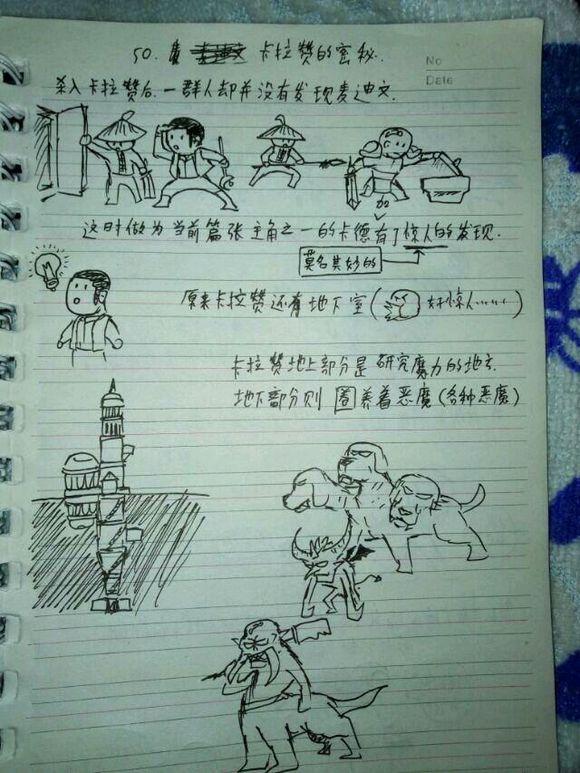 50. 卡拉赞的密秘.
No
Date
杀入卡拉赞后.一群人却并没有发现麦迪文.
加
这时做为当前篇张主角之一的卡德有了惊人的发现.
莫名其妙的
原来卡拉赞还有地下室(好惊人……)
卡拉赞地上部分是研究魔力的地方.
地下部分则圈养着恶魔(各种恶魔)